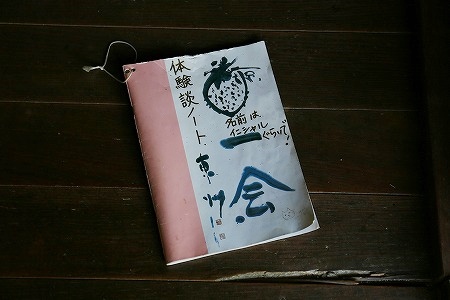 体験談ノート
東州
名前は
イニシャル
ぐらいで!
一会